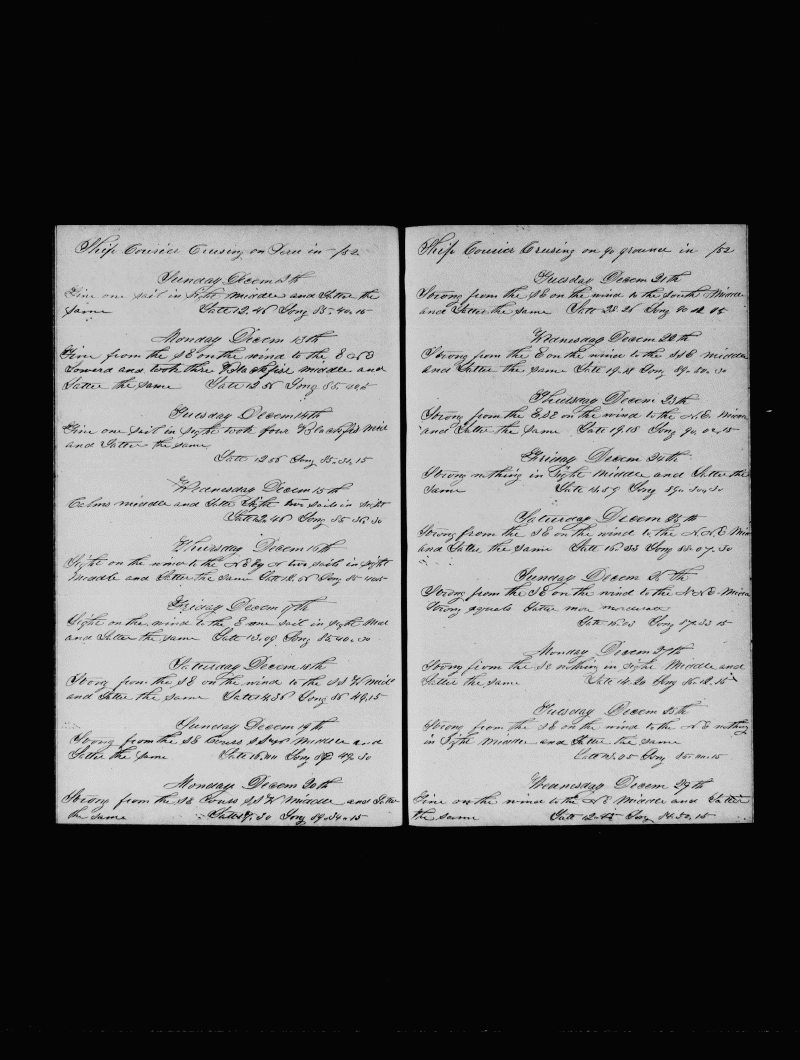 Ship Courier Crusing on Peru in /52
Sunday Decem 12th
Fine one sail in sight Middle and Latter the
same Latt 12.46 Long 85.40.15
Monday Decem 13th
Fine from the SE on the wind to the E
Lowerd and took three Blackfish middle and
Latter the same Latt 12.56 Long 85
Tuesday Decem 14th
Fine one sail in sight took four Blackfish Mid
and Latter the same
Latt 12.56 Long 85.31.15
Wednesday Decem 15th
Calms middle and Latter Light two sails in sight
Latt 12.46 Long 85.36.30
Thursday Decem 16th
Light on the wind to the NE by N two sails in sight
Middle and Latter the same Latt 12 Long 85
Friday Decem 17th
Light on the wind to the E one sail in sight Mid
and Latter the same Latt 13.09 Long 85.40.30
Saturday Decem 18th
Strong from the SE on the wind to the SSW Mid
and Latter the same Latt 14.36 Long 86.49.15
Sunday Decem 19th
Strong from the SE Courss SSW Middle and
Latter the same Latt 16 Long 49.30
Monday Decem 20th
Strong from the SE Courss SSW Middle and Latter
the same Latt .30 Long 89.34.15
Ship Courier Crusing on grounde in /52
Tuesday Decem 21th
Strong from the SE on the wind to the South Middle
and Latter the same Latt Long 90
Wednesday Decem 22th
Strong from the E on the wind to the Middle
and Latter the same Latt 19 Long 89.30
Thursday Decem 23th
Strong from the ESE on the wind to the NE
and Latter the same Latt 19.18 Long 90.02.15
Friday Decem 24th
Strong nothing in Sight Middle and Latter the
same Latt Long 89
Saturday Decem 25th
Strong from the SE on the wind to the NNE
and Latter the same Latt 16.33 Long 88.07.30
Sunday Decem 26th
Strong from the SE on the wind to the NNE
strong squals Latter more
Latt 15.03 Long 87.33.15
Monday Decem 27th
Strong from the SE nothing in sight Middle and
Latter the same Latt 14.20 Long 86
Tuesday Decem 28th
Strong from the SE on the wind to the NE nothing
in Sight Middle and Latter the same
Latt 13.05 Long 85
Wednesday Decem 29th
Fine on the wind to the NE Middle and Latter
the same Latt 12 Long 84.52.15